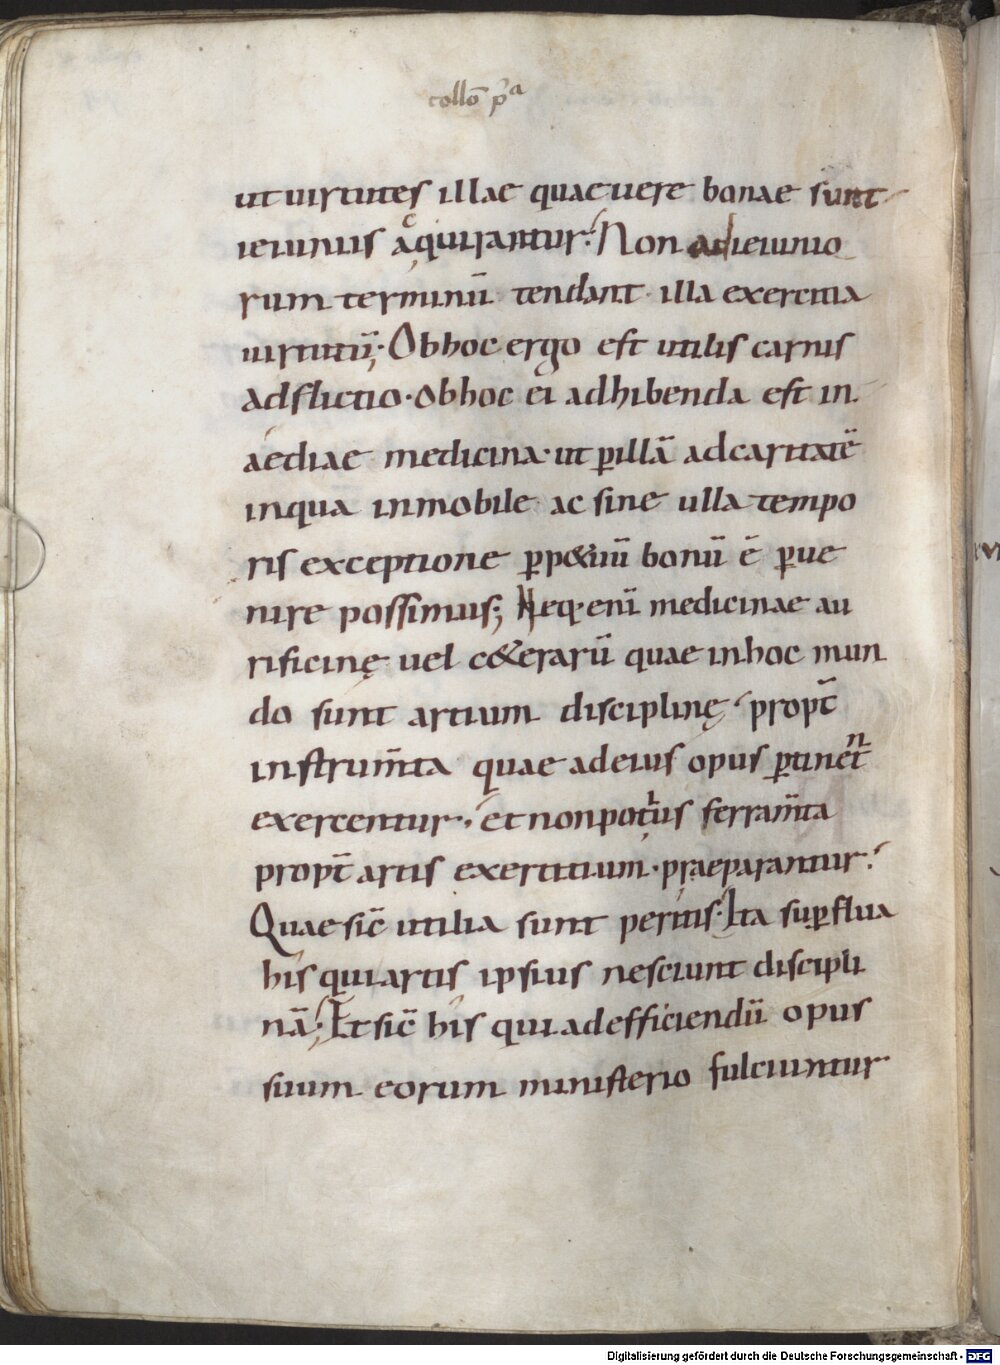 collõ p̃ª
ut uirtutes illae quae uere bonae sunt
ieiuniis acquirantur. Non ad ieiunio
rum terminū tendant illa exercitia
uirtutū; Ob hoc ergo est utilis carnis
adflictio. ob hoc ei adhibenda est in
aediae medicina. ut ꝑ illā ad caritatē
in qua inmobile ac sine ulla tempo
ris exceptione ꝑp&uū bonū ē ꝑue
nire possimus; Neq; enī medicinae au
rificinę uel c&erarū quae in hoc mun
do sunt artium disciplinę propt̄
instrum̄ta quae ad eius opus ꝑtinen̄t
exercentur. et non potius ferram̄ta
propt̄ artis exertitium. praeparantur.
Quae sic̄ utilia sunt peritis. Ita suꝑflua
his qui artis ipsius nesciunt discipli
nā; Et sic̄ his qui ad efficiendū opus
suum eorum ministerio fulciuntur
Digitalisierung gefördert durch die Deutsche Forschungsgemeinschaft - DFG